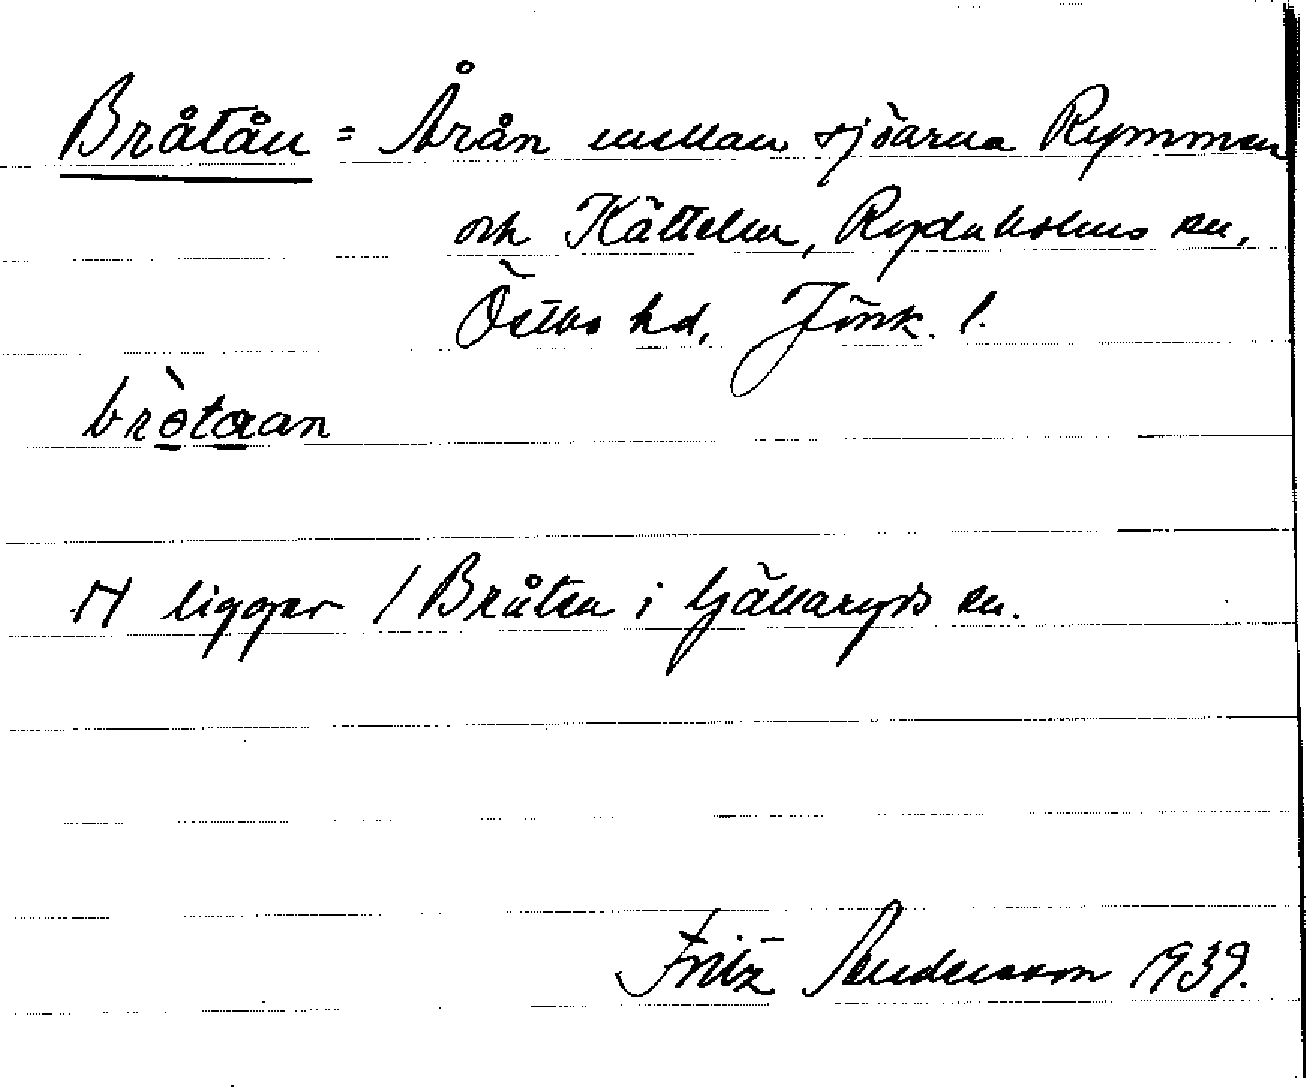 Bråtån = Årån mellan sjöarna Rymmen
och Kättelen, Rydaholms sn,
Östbo hd, Jönk. l.
bròtaan
H ligger / Bråten i Gällaryds sn.
Fritz Andersson 1939.